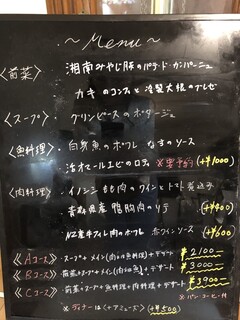 ～Menu～
〈前菜〉 湘南みやじ豚のパテ・ド・カンパーニュ
カキのコンフィと冷製大根のブルゼ
〈スープ〉 グリンピースのポタージュ
〈魚料理〉 白身魚のポワレ なすのソース
活オマールエビのロティ ※要予約 (+¥1000)
〈肉料理〉 イノシシもも肉のワインとトマト煮込み
青森県産鴨胸肉のソテー (+¥400)
NZ産牛フィレ肉のポワレ 赤ワインソース (+¥600)
《Aコース》 スープ+メイン(肉or魚料理)+デザート ¥2100-
《Bコース》 前菜+スープ+メイン(肉or魚)+デザート ¥3000-
《Cコース》 前菜+スープ+魚料理+肉料理+デザート ¥3900-
※パン・コーヒー付
※ディナーは(+アミューズ) (+¥500)